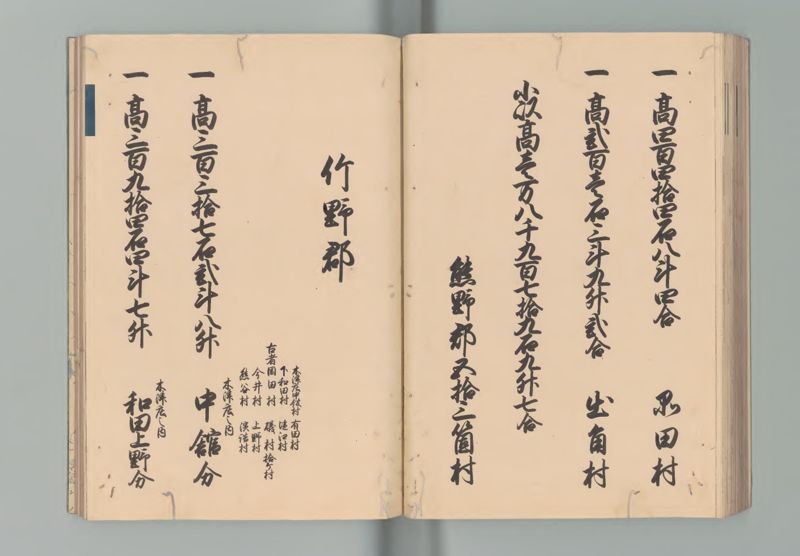 一 高四百四拾四石八斗四合 田村
一 高弐百壱石三斗九升弐合 出角村
小以高壱万八千九百七拾九石九升七合
熊野郡五拾三箇村
竹野郡
有田村
下和田村
田村 磯村 拾ケ村
今井村 上野村
熊谷村 村
本溝庄之内
一 高三百三拾七石弐斗八升 中舘分
本溝庄之内
一 高三百九拾四石四斗七升 和田上野分